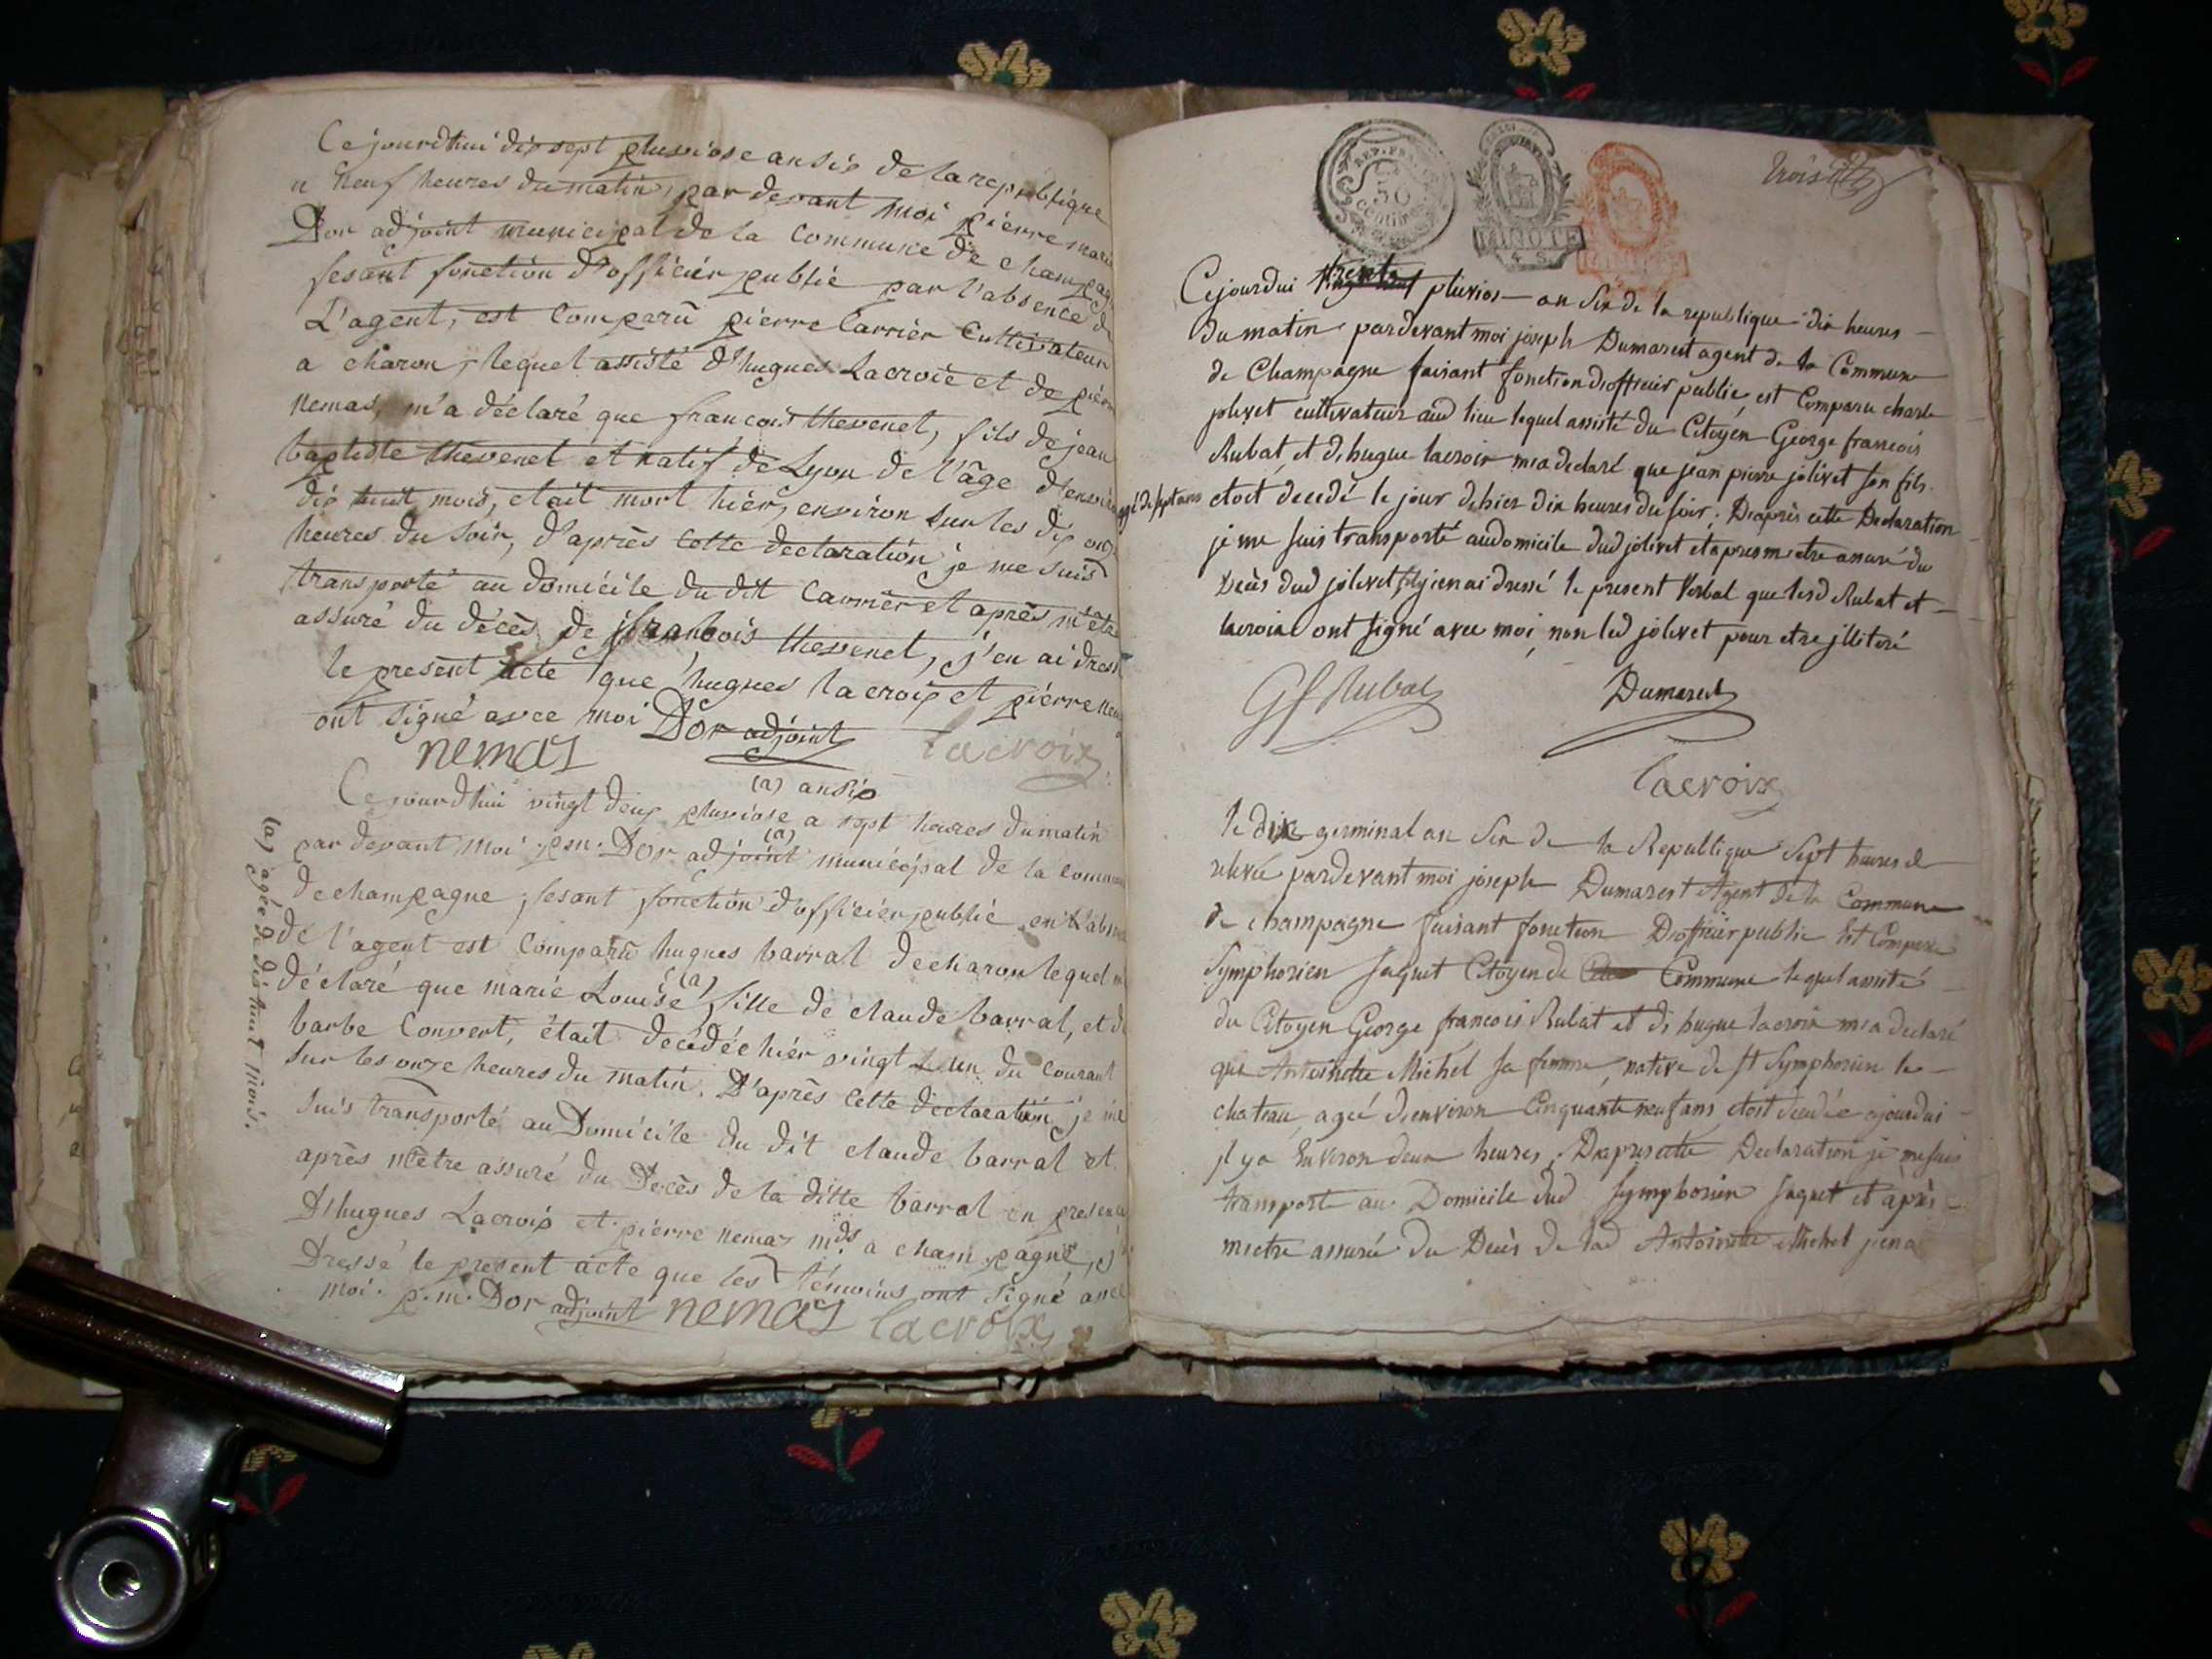 Ce jourdhui dix sept pluviose an six de la republique
a neuf heures du matin, par devant moi pierre marie
Dor adjoint municipal de la commune de champag
fesant fonction d'officier public par l'absence de
L'agent, est comparu pierre Carrier Cultivateur
a charon, lequel assisté d'hugues Lacroix et de pierr
nemas, m'a déclaré que francois thevenet, fils de jean
baptiste thevenet et natif de Lyon de l'âge d'environ
dix huit mois, etait mort hier, environ sur les dix onz
heures du soir, d'après cette declaration je me suis
transporté au domicile du dit Carrier et après m'etre
assuré du décès de francois thevenet, j'en ai dressé
le present acte que hugues lacroix et pierre nem
ont signé avec moi Dor adjoint
nemaz lacroix
(a) an six
Ce jourdhui vingt deux pluviose a sept heures du matin
par devant moi p.m. Dor adjoint (a) municipal de la commune
de champagne, fesant fonction d'officier public en l'absence
de l'agent est comparu hugues barral de charon lequel m'
déclaré que marie Louise (a), fille de claude barral, et de
barbe Convert, était décédée hier vingt un du courant
sur les onze heures du matin. D'après cette declaration je me
suis transporté au Domicile du dit claude barral et
après m'etre assuré du Decès de la ditte barral en presence
D'hugues Lacroix et pierre nemaz mds a champagne, j'
Dressé le present acte que les témoins ont signé avec
moi. p.m. Dor adjoint nemaz lacroix
(a) agée de dix huit mois.
REP. FRA.
50
centimes
MINUTE
4 S.
trois
Cejourdui trente pluvios an six de la republique dix heures
du matin pardevant moi joseph Dumarest agent de la Commune
de Champagne faisant fonction d'officier public est Comparu charle
jolivet cultivateur aud lieu lequel assisté du Citoyen George francois
Rubat et d'hugue lacroix m'a declaré que jean pierre jolivet son fils
agé de sept ans etoit decedé le jour d'hier dix heures du soir. D'après cette Declaration
je me suis transporté audomicile dud jolivet et apres m'etre assuré du
Décès dud jolivet fils j'en ai dressé le present Verbal que lesd Rubat et
lacroix ont signé avec moi, non led jolivet pour etre jlliteré
Gf Rubat Dumarest
lacroix
le dix germinal an six de la Republique sept heures de
relevée pardevant moi joseph Dumarest Agent de la Commune
de champagne faisant fonction D'officier public Est Comparu
Symphorien Jaquet Citoyen de Commune lequel assisté
du Citoyen George francois Rubat et d'hugue lacroix m'a declaré
que Antoinette Michel sa femme, native de st Symphorien le
chateau, agée d'environ Cinquante neuf ans, etoit decedée ajourdui
jl y a Environ deux heures, D'apres cette Declaration je me suis
transport au Domicile dud Symphorien Jaquet et après
m'etre assurée du Decès de lad Antoinette Michel j'en a